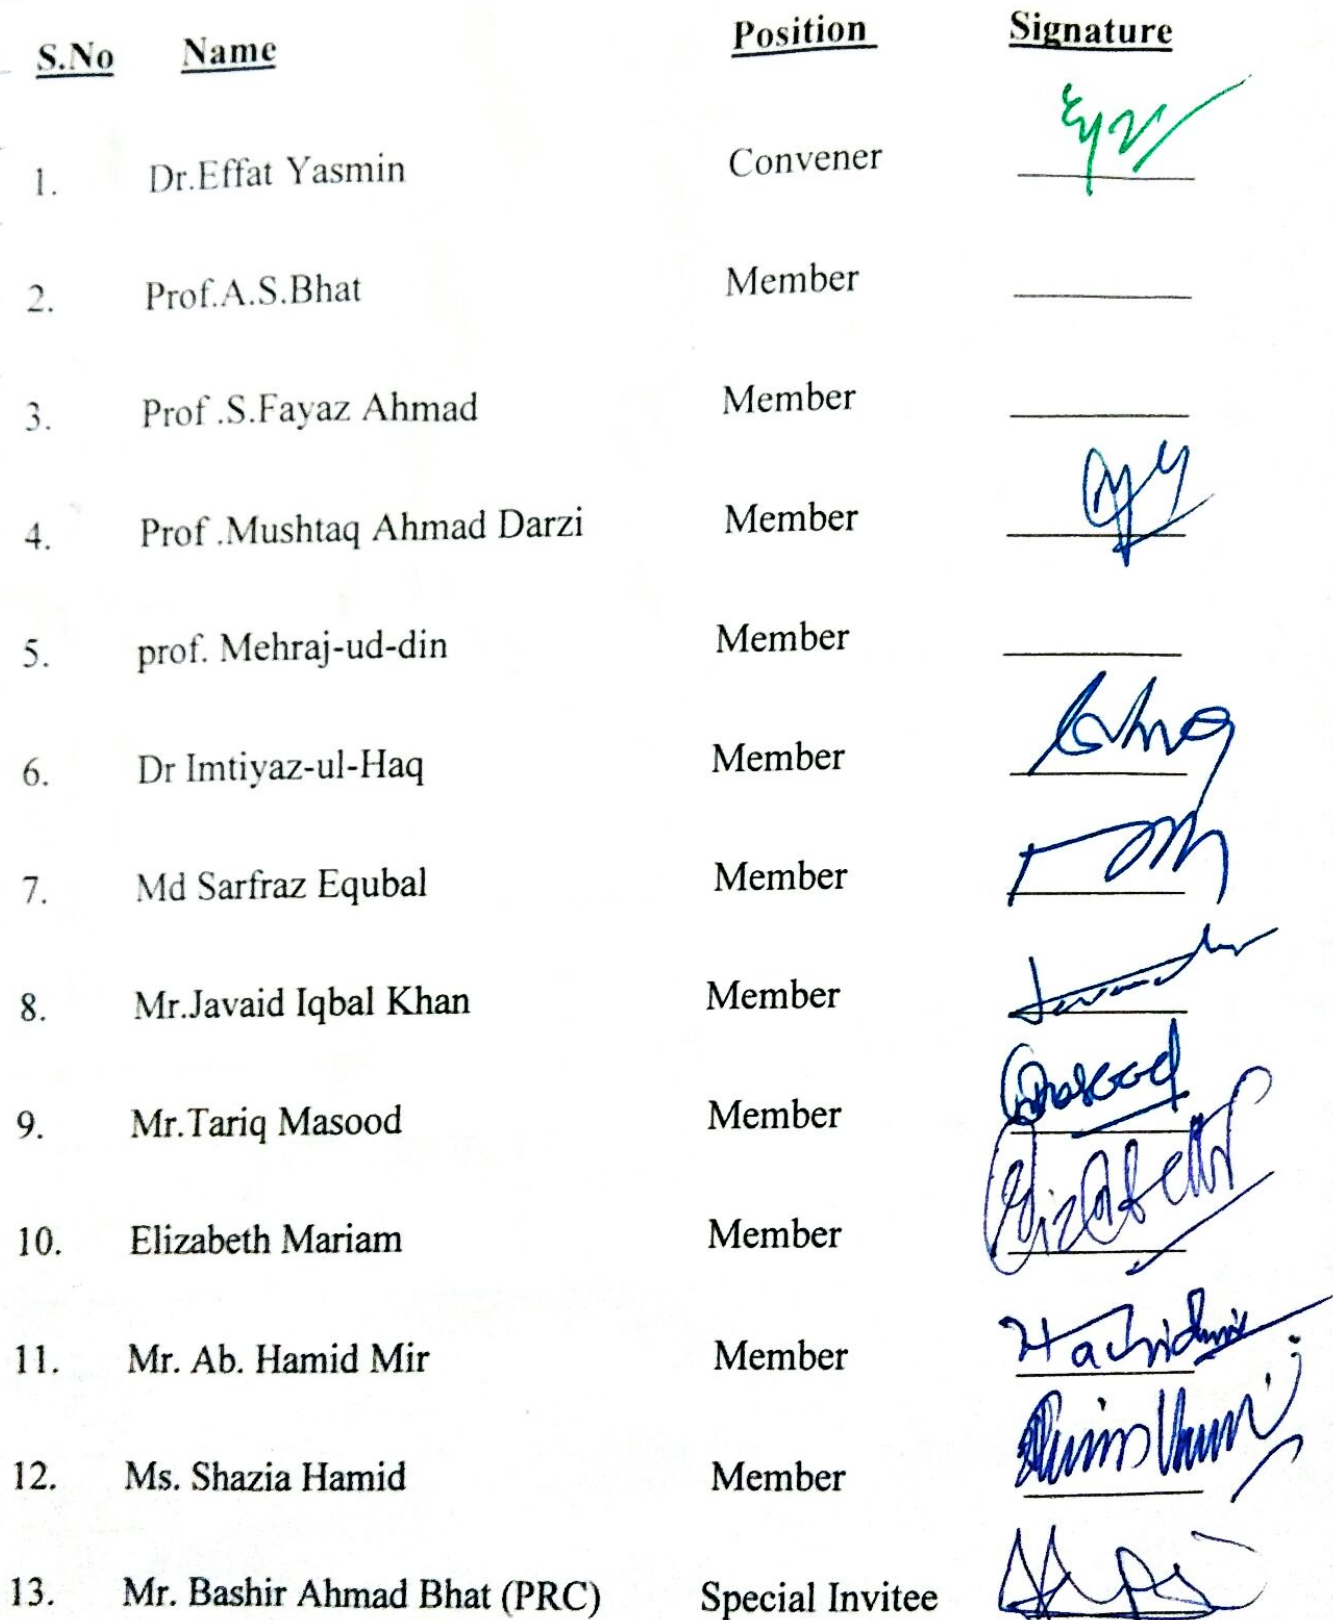 S.No Name Position Signature
1. Dr.Effat Yasmin Convener
2. Prof.A.S.Bhat Member
3. Prof .S.Fayaz Ahmad Member
4. Prof .Mushtaq Ahmad Darzi Member
5. prof. Mehraj-ud-din Member
6. Dr Imtiyaz-ul-Haq Member
7. Md Sarfraz Equbal Member
8. Mr.Javaid Iqbal Khan Member
9. Mr.Tariq Masood Member Masood
10. Elizabeth Mariam Member Elizabeth
11. Mr. Ab. Hamid Mir Member
12. Ms. Shazia Hamid Member
13. Mr. Bashir Ahmad Bhat (PRC) Special Invitee